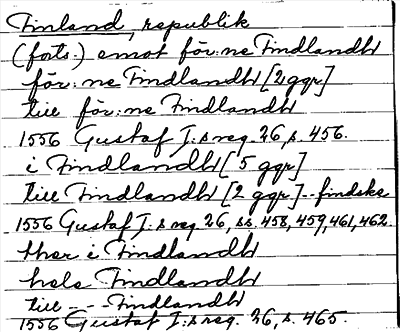 Finland, republik
(forts.) emot för:ne Findlandh
för:ne Findlandh [2 ggr]
till för:ne Findlandh
1556 Gustaf I:s reg. 26, s. 456.
i Findlandh [5 ggr]
till Findlandh [2 ggr] - findske
1556 Gustaf I:s reg 26, ss. 458, 459, 461, 462.
ther i Findlandh
hele Findlandh
till - - - Findlandh
1556 Gustaf I:s reg. 26, s. 465.